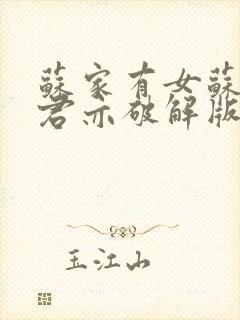 蘇家有女蘇
君亦破解版
玉江山